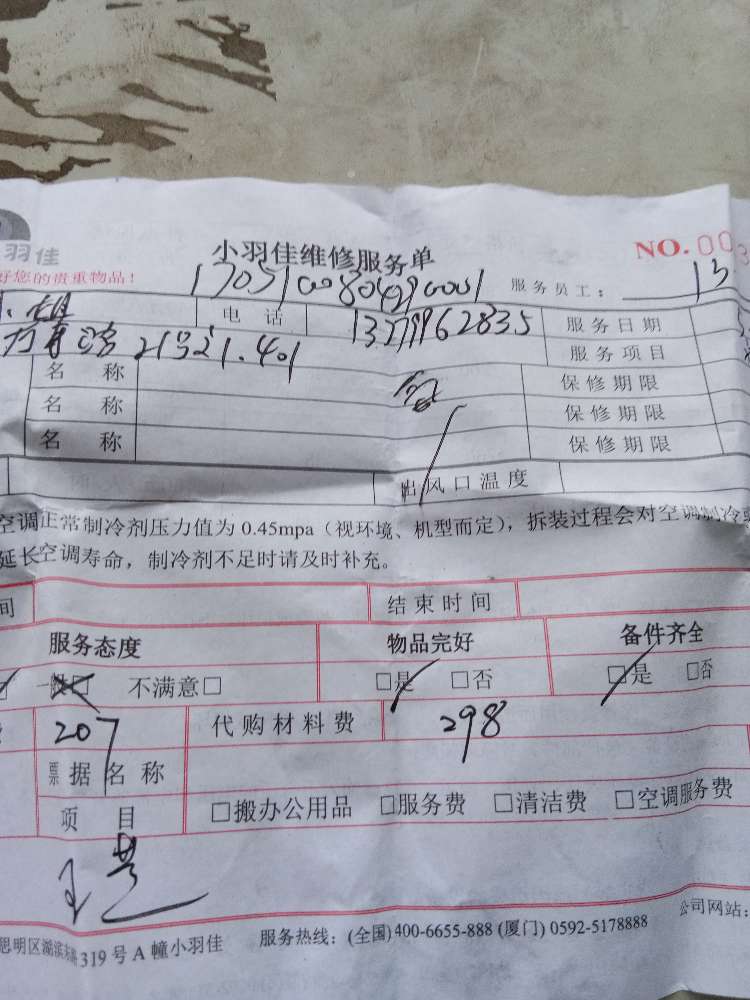 羽佳
小羽佳维修服务单
NO.00
好您的贵重物品!
服务员工: 13
电话 13779962835 服务日期
21号21.401 服务项目
名称 保修期限
名称 保修期限
名称 保修期限
出风口温度
空调正常制冷剂压力值为 0.45mpa（视环境、机型而定），拆装过程会对空调制冷
延长空调寿命，制冷剂不足时请及时补充。
间 结束时间
服务态度 物品完好 备件齐全
一般□ 不满意□ □是 □否 □是 □否
207 代购材料费 298
票据名称
项目 □搬办公用品 □服务费 □清洁费 □空调服务费
思明区湖滨东路 319 号 A 幢小羽佳 服务热线：(全国) 400-6655-888 (厦门) 0592-5178888 公司网站：